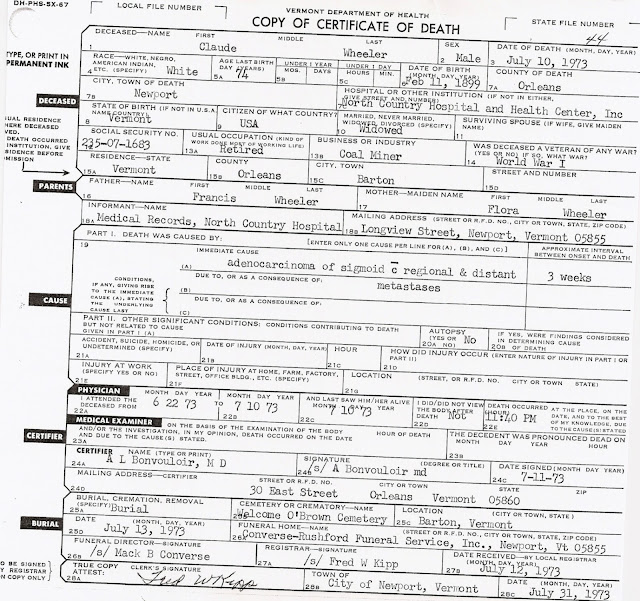 DH-PHS-SX-67
LOCAL FILE NUMBER
VERMONT DEPARTMENT OF HEALTH
COPY OF CERTIFICATE OF DEATH
STATE FILE NUMBER
44
TYPE, OR PRINT IN
PERMANENT INK
DECEASED—NAME FIRST MIDDLE LAST
1 Claude Wheeler
SEX
2 Male
DATE OF DEATH (MONTH, DAY, YEAR)
3 July 10, 1973
RACE—WHITE, NEGRO, AMERICAN INDIAN, ETC. (SPECIFY)
4 White
AGE LAST BIRTHDAY (YEARS)
5A 74
UNDER 1 YEAR
MOS. DAYS
5B
UNDER 1 DAY
HOURS MIN.
5C
DATE OF BIRTH (MONTH, DAY, YEAR)
6 Feb 11, 1899
COUNTY OF DEATH
7A Orleans
CITY, TOWN OF DEATH
7B Newport
HOSPITAL OR OTHER INSTITUTION (IF NOT IN EITHER, GIVE STREET AND NUMBER)
7C North Country Hospital and Health Center, Inc
DECEASED
STATE OF BIRTH (IF NOT IN U.S.A. NAME COUNTRY)
8 Vermont
CITIZEN OF WHAT COUNTRY
9 USA
MARRIED, NEVER MARRIED, WIDOWED, DIVORCED (SPECIFY)
10 Widowed
SURVIVING SPOUSE (IF WIFE, GIVE MAIDEN NAME)
11
SUAL RESIDENCE
HERE DECEASED
VED.
DEATH OCCURRED
INSTITUTION, GIVE
SIDENCE BEFORE
DMISSION
SOCIAL SECURITY NO.
235-07-1683
USUAL OCCUPATION (KIND OF WORK DONE MOST OF WORKING LIFE)
13A Retired
BUSINESS OR INDUSTRY
13B Coal Miner
WAS DECEASED A VETERAN OF ANY WAR? (YES OR NO) IF SO, WHAT WAR?
14 World War I
RESIDENCE—STATE
15A Vermont
COUNTY
15B Orleans
CITY, TOWN
15C Barton
STREET AND NUMBER
15D
PARENTS
FATHER—NAME FIRST MIDDLE LAST
16 Francis Wheeler
MOTHER—MAIDEN NAME FIRST MIDDLE LAST
17 Flora Wheeler
INFORMANT—NAME
18A Medical Records, North Country Hospital
MAILING ADDRESS (STREET OR R.F.D. NO., CITY OR TOWN, STATE, ZIP CODE)
18B Longview Street, Newport, Vermont 05855
PART I. DEATH WAS CAUSED BY: [ENTER ONLY ONE CAUSE PER LINE FOR (A), (B), AND (C)]
APPROXIMATE INTERVAL BETWEEN ONSET AND DEATH
19 IMMEDIATE CAUSE
(A) adenocarcinoma of sigmoid c̄ regional & distant
3 weeks
DUE TO, OR AS A CONSEQUENCE OF: metastases
CONDITIONS, IF ANY, GIVING RISE TO THE IMMEDIATE CAUSE (A), STATING THE UNDERLYING CAUSE LAST
(B)
DUE TO, OR AS A CONSEQUENCE OF:
(C)
CAUSE
PART II. OTHER SIGNIFICANT CONDITIONS: CONDITIONS CONTRIBUTING TO DEATH BUT NOT RELATED TO CAUSE GIVEN IN PART I (A)
AUTOPSY (YES OR NO)
20A No
IF YES, WERE FINDINGS CONSIDERED IN DETERMINING CAUSE OF DEATH
20B
ACCIDENT, SUICIDE, HOMICIDE, OR UNDETERMINED (SPECIFY)
21A
DATE OF INJURY (MONTH, DAY, YEAR)
21B
HOUR
21C
HOW DID INJURY OCCUR (ENTER NATURE OF INJURY IN PART I OR PART II)
21D
INJURY AT WORK (SPECIFY YES OR NO)
21E
PLACE OF INJURY AT HOME, FARM, FACTORY, STREET, OFFICE BLDG., ETC. (SPECIFY)
21F
LOCATION (STREET, OR R.F.D. NO. CITY OR TOWN STATE)
21G
PHYSICIAN
I ATTENDED THE DECEASED FROM
22A
MONTH DAY YEAR
6 22 73
TO
MONTH DAY YEAR
7 10 73
22B
AND LAST SAW HIM/HER ALIVE
MONTH DAY YEAR
7 10 73
22C
I DID/DID NOT VIEW THE BODY AFTER DEATH
Not
DEATH OCCURRED AT THE PLACE, ON THE DATE, AND TO THE BEST OF MY KNOWLEDGE, DUE TO THE CAUSE(S) STATED
11:40 PM
MEDICAL EXAMINER—ON THE BASIS OF THE EXAMINATION OF THE BODY AND/OR THE INVESTIGATION, IN MY OPINION, DEATH OCCURRED ON THE DATE AND DUE TO THE CAUSE(S) STATED.
23A
HOUR OF DEATH
THE DECEDENT WAS PRONOUNCED DEAD ON
MONTH DAY YEAR HOUR
CERTIFIER
CERTIFIER NAME (TYPE OR PRINT)
24A A L Bonvouloir, M D
SIGNATURE (DEGREE OR TITLE)
24B s/ A Bonvouloir md
DATE SIGNED (MONTH DAY YEAR)
24C 7-11-73
MAILING ADDRESS—CERTIFIER STREET OR R.F.D. NO. CITY OR TOWN STATE ZIP
24D 30 East Street Orleans Vermont 05860
BURIAL
BURIAL, CREMATION, REMOVAL (SPECIFY)
25A Burial
CEMETERY OR CREMATORY—NAME
25B Welcome O'Brown Cemetery
LOCATION CITY OR TOWN STATE
25C Barton, Vermont
DATE (MONTH, DAY, YEAR)
25D July 13, 1973
FUNERAL HOME—NAME (STREET OR R.F.D. NO., CITY OR TOWN, STATE, ZIP CODE)
26A Converse-Rushford Funeral Service, Inc., Newport, Vt 05855
FUNERAL DIRECTOR—SIGNATURE
26B /s/ Mack B Converse
REGISTRAR—SIGNATURE
27A /s/ Fred W Kipp
DATE RECEIVED—BY LOCAL REGISTRAR
27B July 12, 1973
O BE SIGNED
Y REGISTRAR
N COPY ONLY)
TRUE COPY ATTEST:
28A
CLERK'S SIGNATURE
Fred W Kipp
TOWN OF
28B City of Newport, Vermont
DATE
28C July 31, 1973